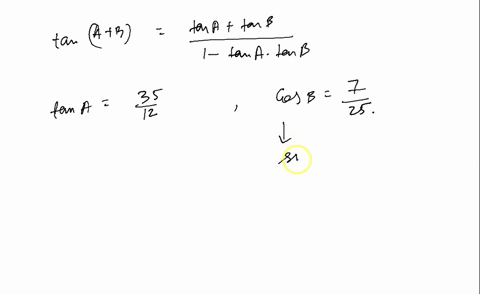 tan (A+B) = tan A + tan B / 1 - tan A . tan B
tan A = 35/12 , Cos B = 7/25.
↓
si